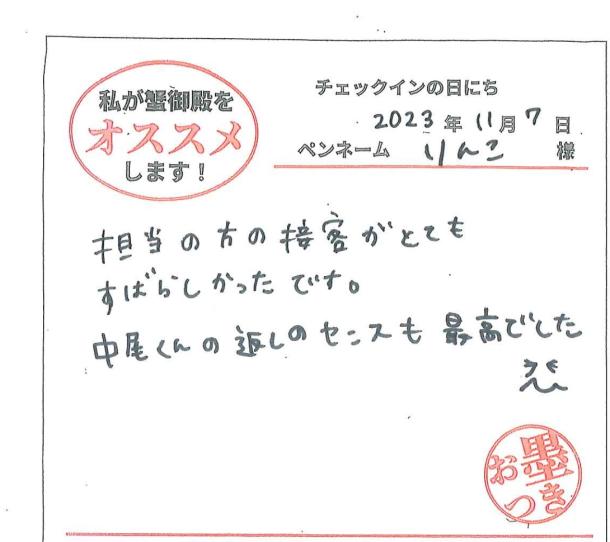 私が蟹御殿を
オススメ
します！
チェックインの日にち
2023年11月7日
ペンネーム りんこ 様
担当の方の接客がとても
すばらしかったです。
中尾くんの返しのセンスも最高でした
お墨
つき